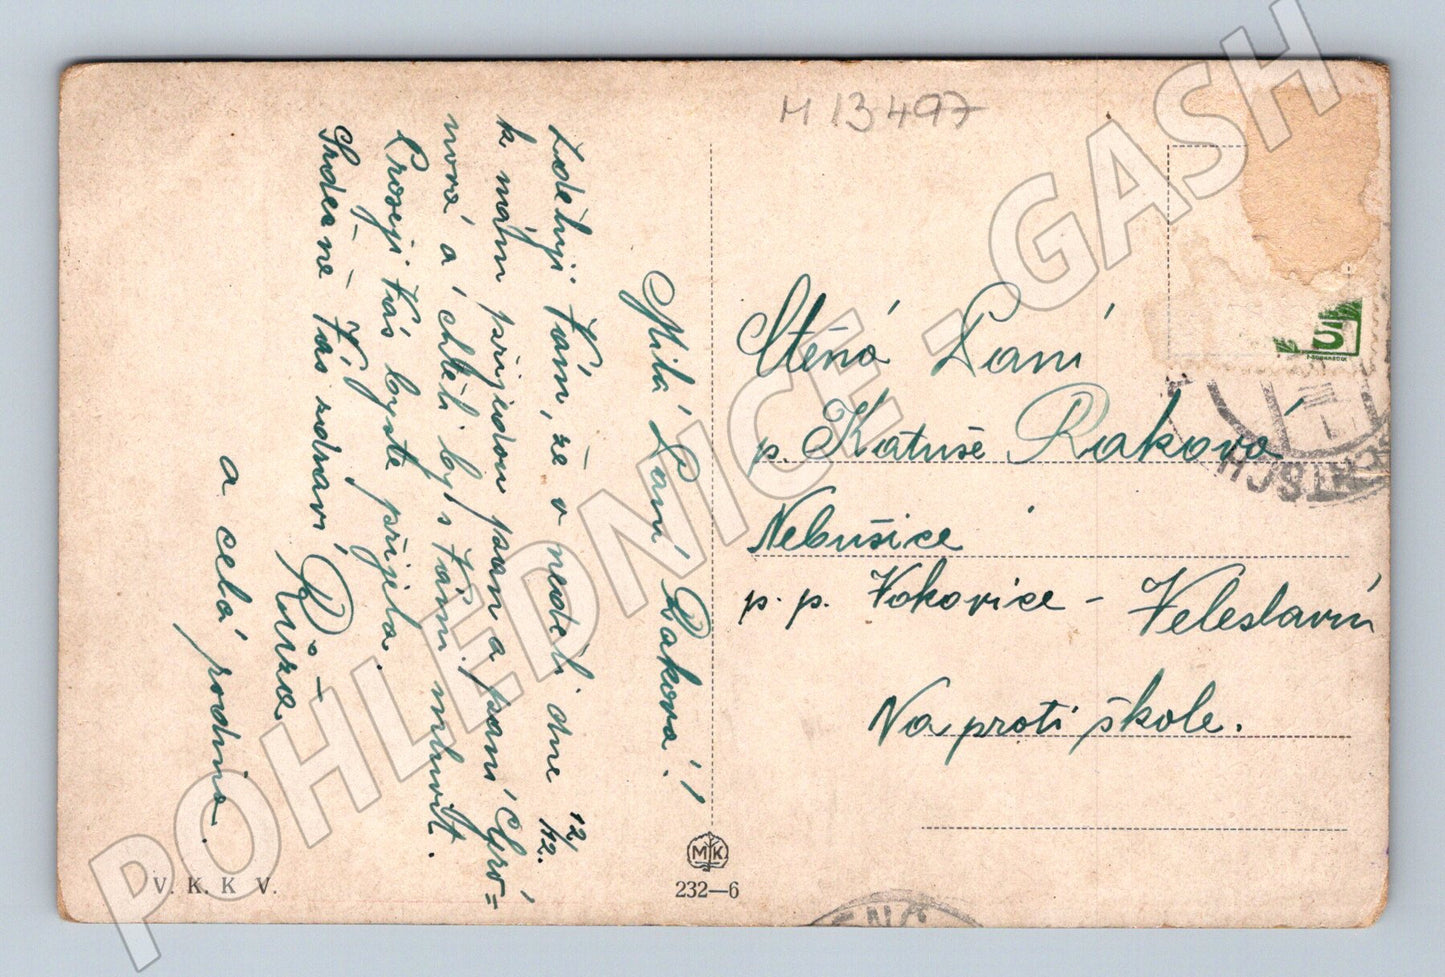 M 13497
Milá Paní Raková!
Zděluji Vám, že v neděli dne 12/12.
k nám přijedou pan a paní Chro=
nová a chtěli by s Vámi mluvit.
Prosíji Vás byste přijela.
Srdečně Vás zdraví
Růža
a celá rodina.
Ctěná Paní
p. Katuše Raková
Nebušice
p. p. Vokovice - Veleslavín
Na proti škole.
5
V. K. K V.
MK
232—6
POHLEDNICE - GASH